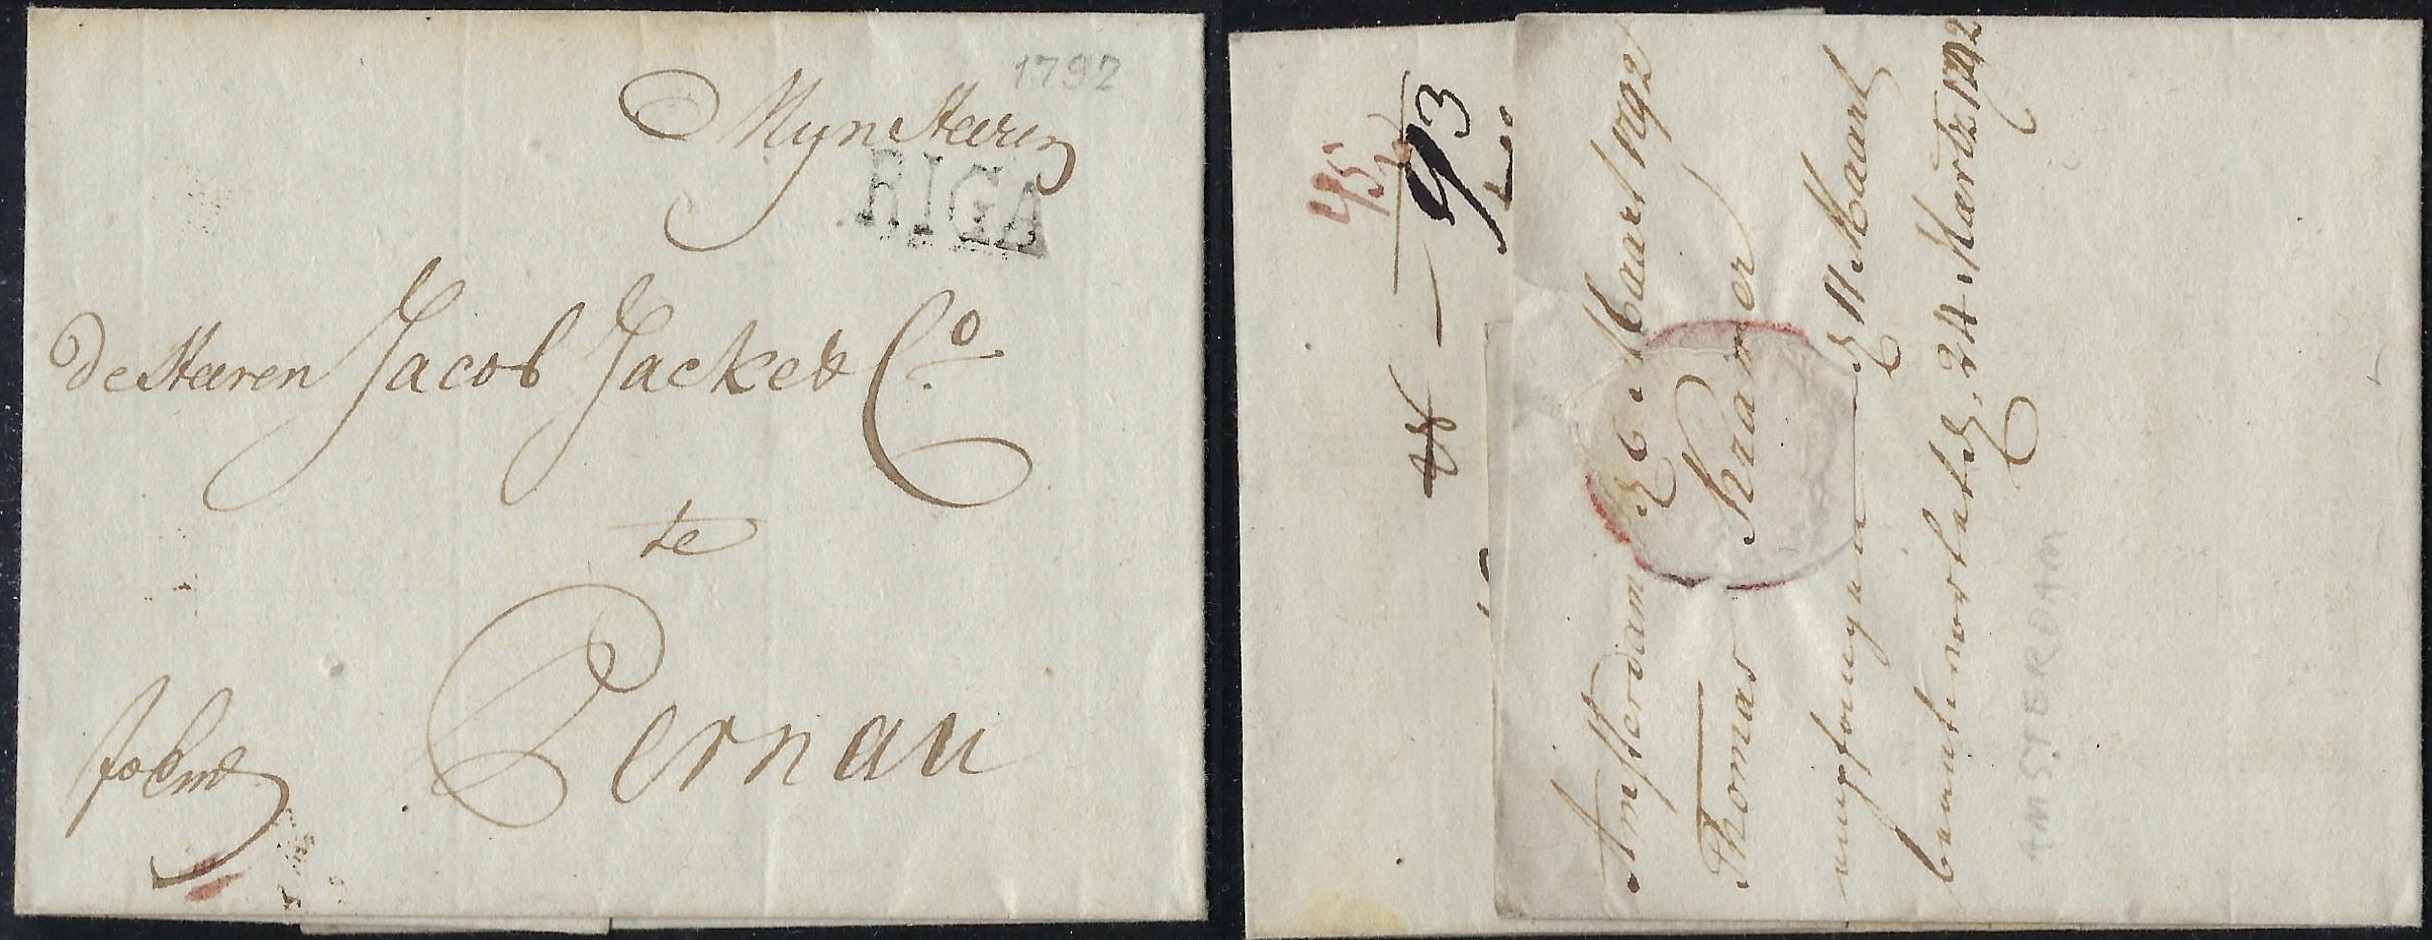 1792
Mÿn Heeren
RIGA
de Heeren Jacob Jacke & Co.
te
Pernau
45
93
Amsterdam d 6 Maart 1792
Thomas Kramer
empfangen d 11 Maart
beantwortet d. 24 Maertz 1792
AMSTERDAM